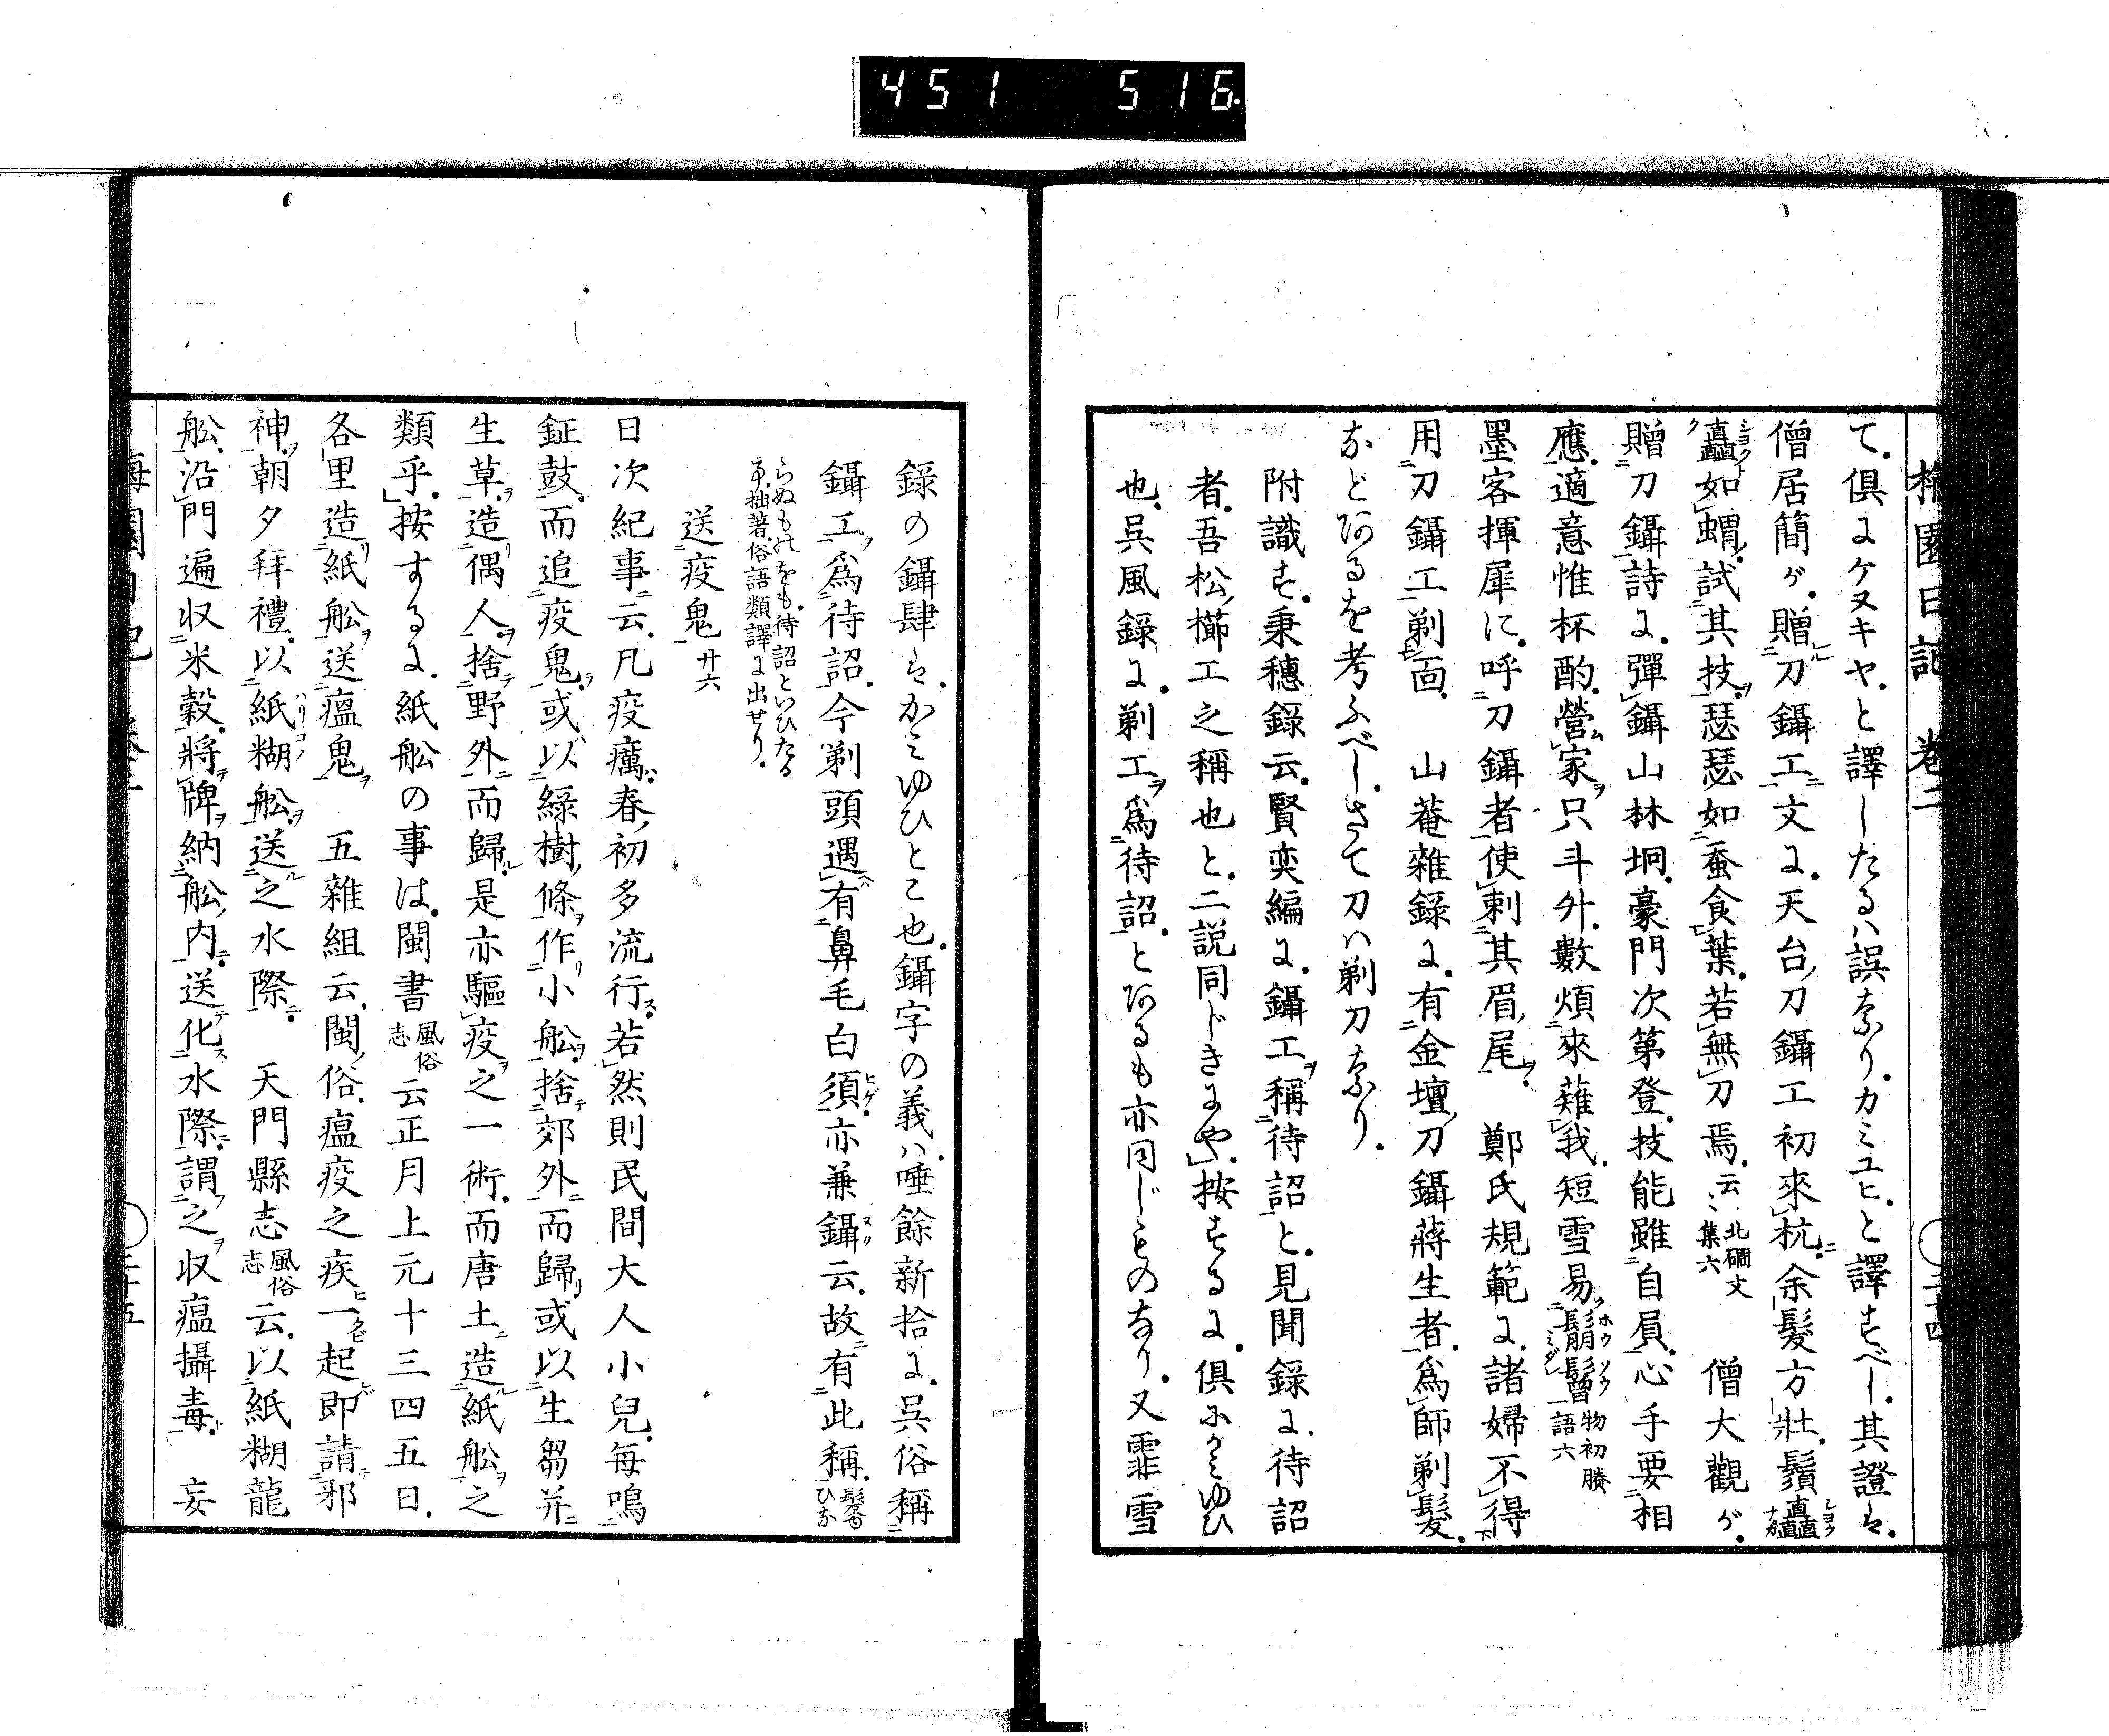 451 516
梅園日記 卷二 二十四
て。俱にケヌキヤ。と譯したるハ誤なり。カミユヒ。と譯すべし。其證は。
僧居簡が。贈刀鑷工文に。天台ノ刀鑷工初來杭。余髮方壯。鬚矗
矗如蝟。試其技。瑟瑟如蚕食葉。若無刀焉。云〻 北磵文集六 僧大觀が。
贈刀鑷詩に。彈鑷山林坰。豪門次第登。技能雖自負。心手要相
應。適意惟杯酌。營家只斗升。數煩來薙我。短雪易鬅鬙 物初賸語六
墨客揮犀に。呼刀鑷者使剃其眉尾。 鄭氏規範に。諸婦不得
用刀鑷工剃面。 山菴雜錄に。有金壇ノ刀鑷蔣生者。爲師剃髮。
などあるを考ふべし。さて刀ハ剃刀なり。
附識す。秉穗錄云。賢奕編に。鑷工稱待詔と。見聞錄に。待詔
者。吾松ノ櫛工之稱也と。二説同じきにや。按するに。俱にかミゆひ
也。呉風錄に。剃工爲待詔。とあるも亦同じものなり。又霏雪
錄の鑷肆は。かミゆひとこ也。鑷字の義ハ。唾餘新拾に。呉俗稱
鑷工爲待詔。今剃頭遇有鼻毛白須。亦兼鑷云。故有此稱。
らぬものをも。待詔といひたる
事。拙著俗語類譯に出せり。
送疫鬼 廿六
日次紀事云。凡疫癘。春初多流行。若然則民間大人小兒。每鳴
鉦鼓。而追疫鬼。或以綠樹ノ條作小舩。捨郊外而歸。或以生芻并
生草。造偶人。捨野外而歸。是亦驅疫之一術。而唐土造紙舩之
類乎。按するに。紙舩の事は。閩書 風俗志 云正月上元十三四五日。
各里造紙舩送瘟鬼 五雜組云。閩俗。瘟疫之疾一起即請邪
神。朝夕拜禮。以紙糊舩。送之水際。 天門縣志 風俗志 云。以紙糊龍
舩。沿門遍収米穀。將牌納舩内。送化水際。謂之収瘟攝毒。 妄